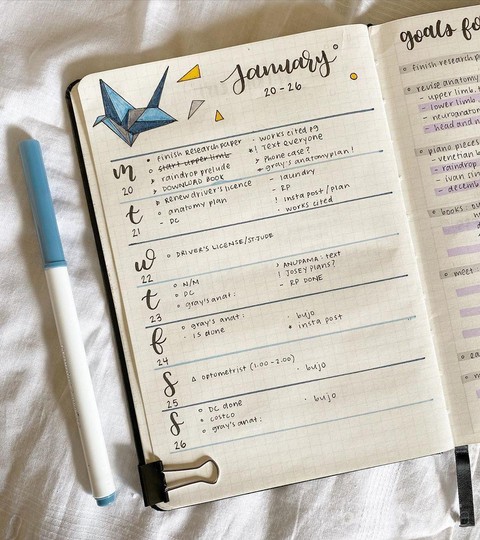 January
20-26
m
20
finish research paper
start upper limb
raindrop prelude
DOWNLOAD BOOK
works cited pg
! TEXT everyone
> Phone case?
gray's anatomy plan!
t
21
> Renew driver's licence
anatomy plan
- DC
- laundry
- RP
! insta post/plan
works cited
w
22
DRIVER'S LICENSE/ST.JUDE
t
23
N/M
DC
gray's anat:
> ANUPAMA: text
! JOSEY plans?
- RP DONE
f
24
gray's anat:
- IS done
· bujo
insta post
s
25
Δ optometrist (1:00-2:00)
· bujo
s
26
DC done
costco
gray's anat:
· bujo
goals fo
finish research p
revise anatomy
- upper limb,
- lower limb
- neuroanator
- head and n
piano pieces
- venetian b
- raindrop
- ivan sin
- decemb
books
meet